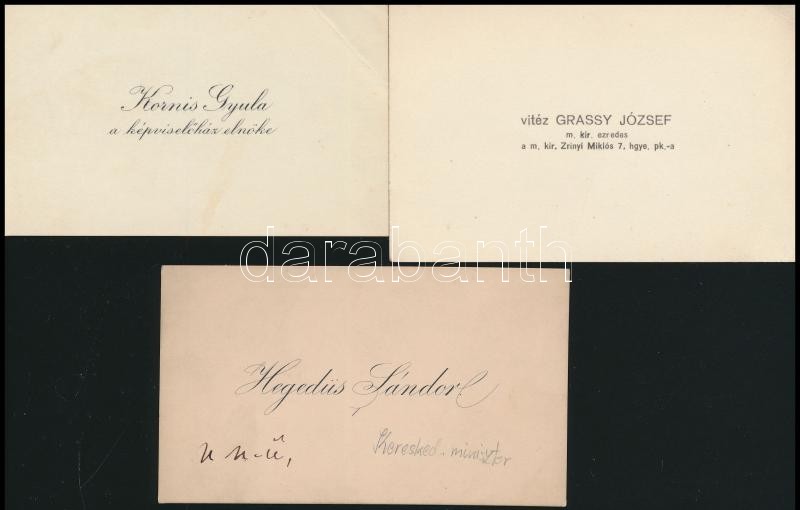 Kornis Gyula
a képviselőház elnöke
vitéz GRASSY JÓZSEF
m. kir. ezredes
a m. kir. Zrinyi Miklós 7. hgye. pk.-a
darabanth
Hegedüs Sándor
Keresked. miniszter